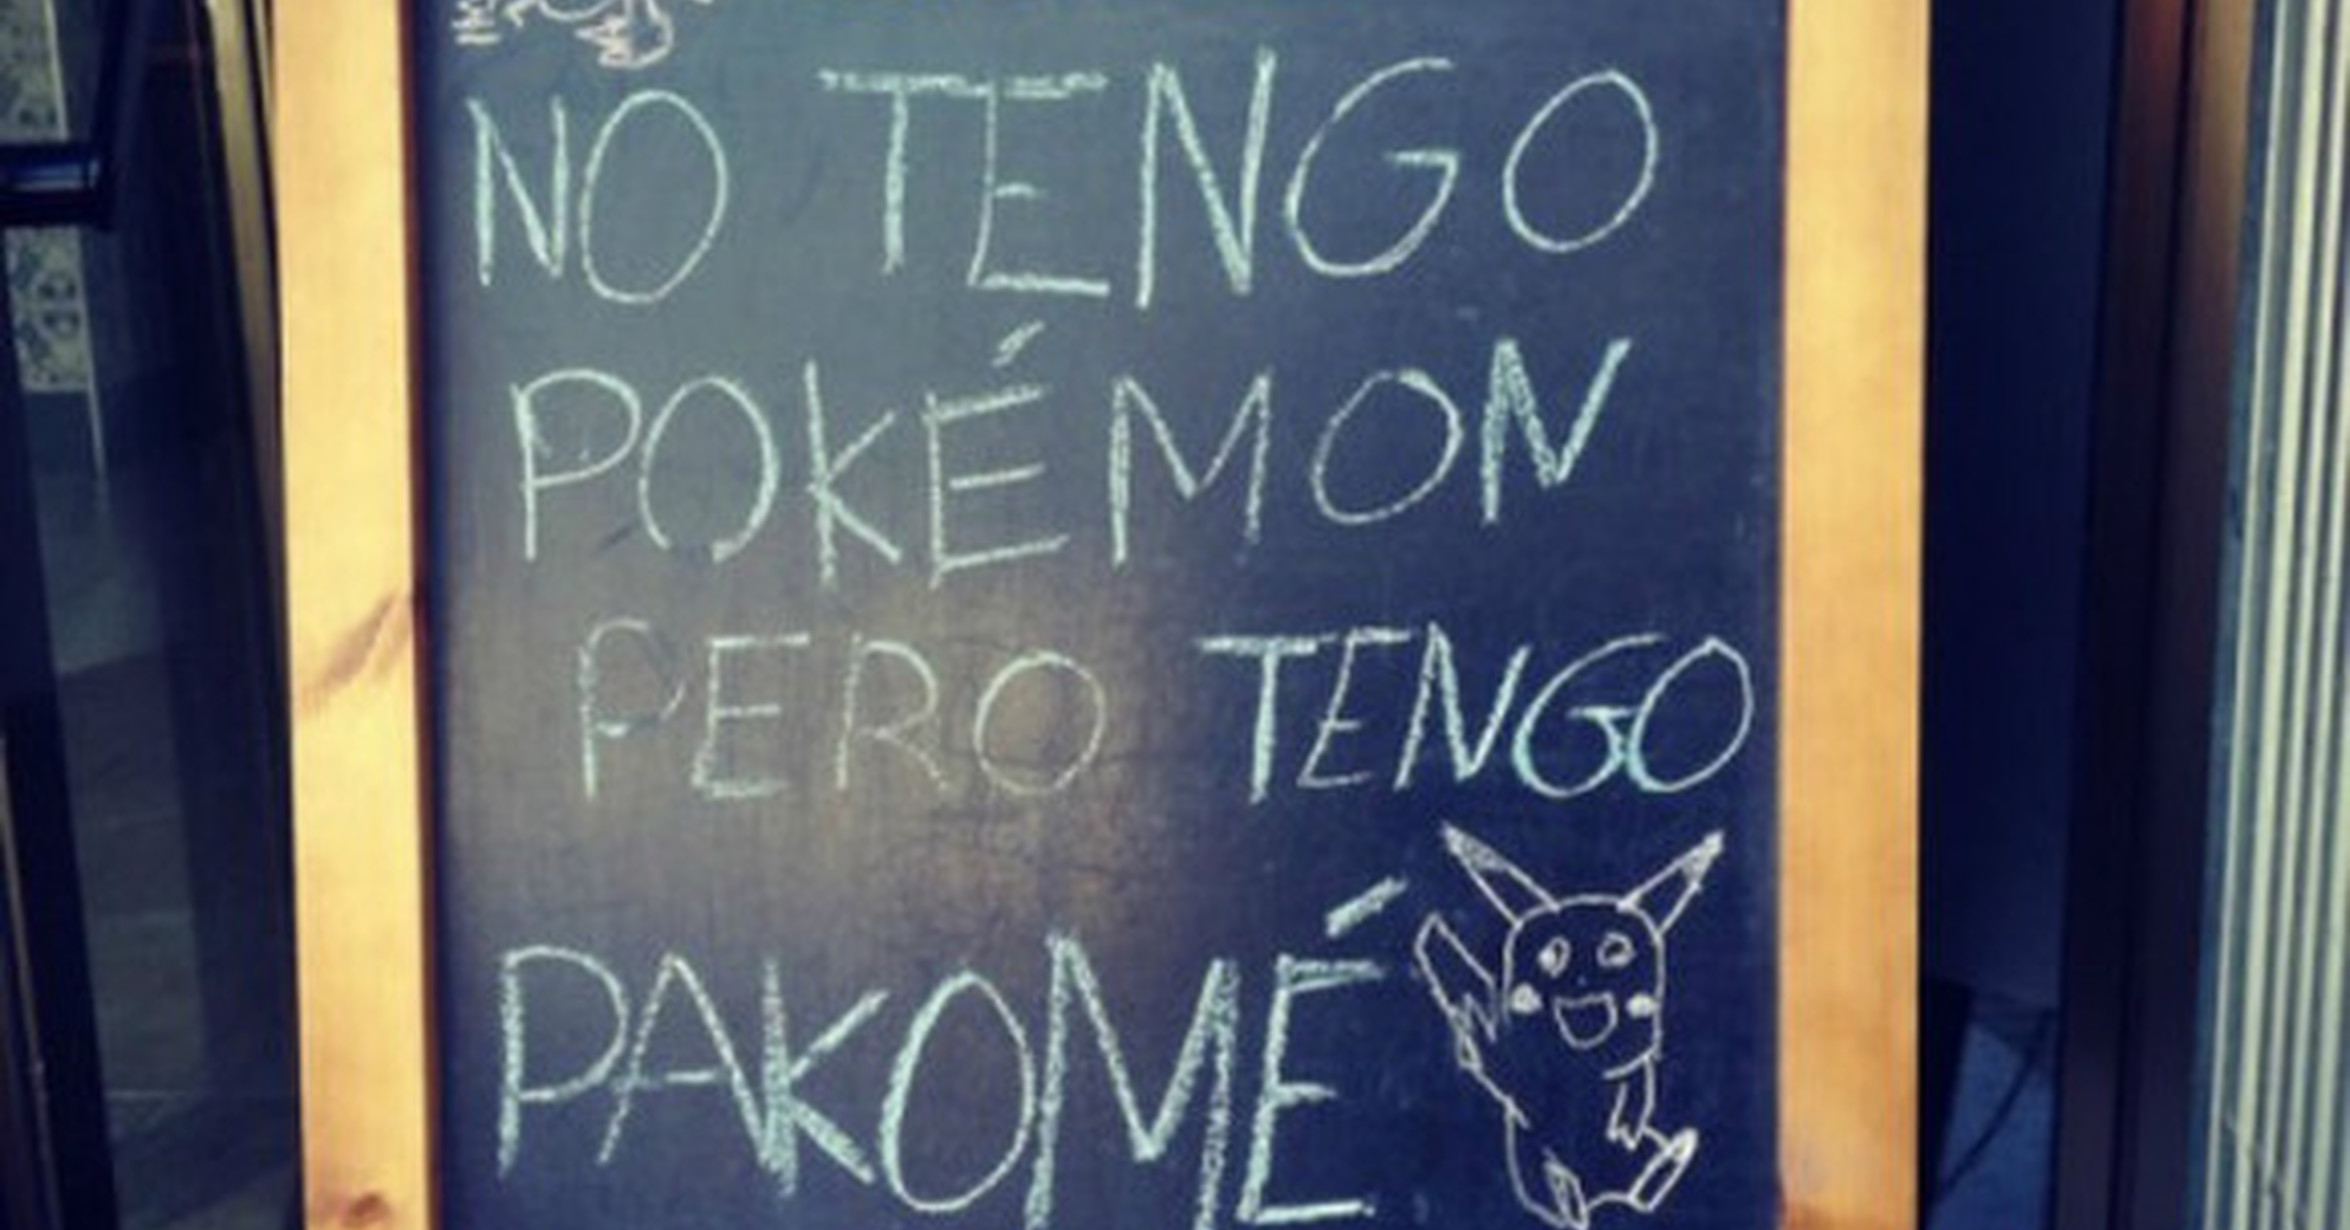 NO TENGO
POKÉMON
PERO TENGO
PAKOMÉ